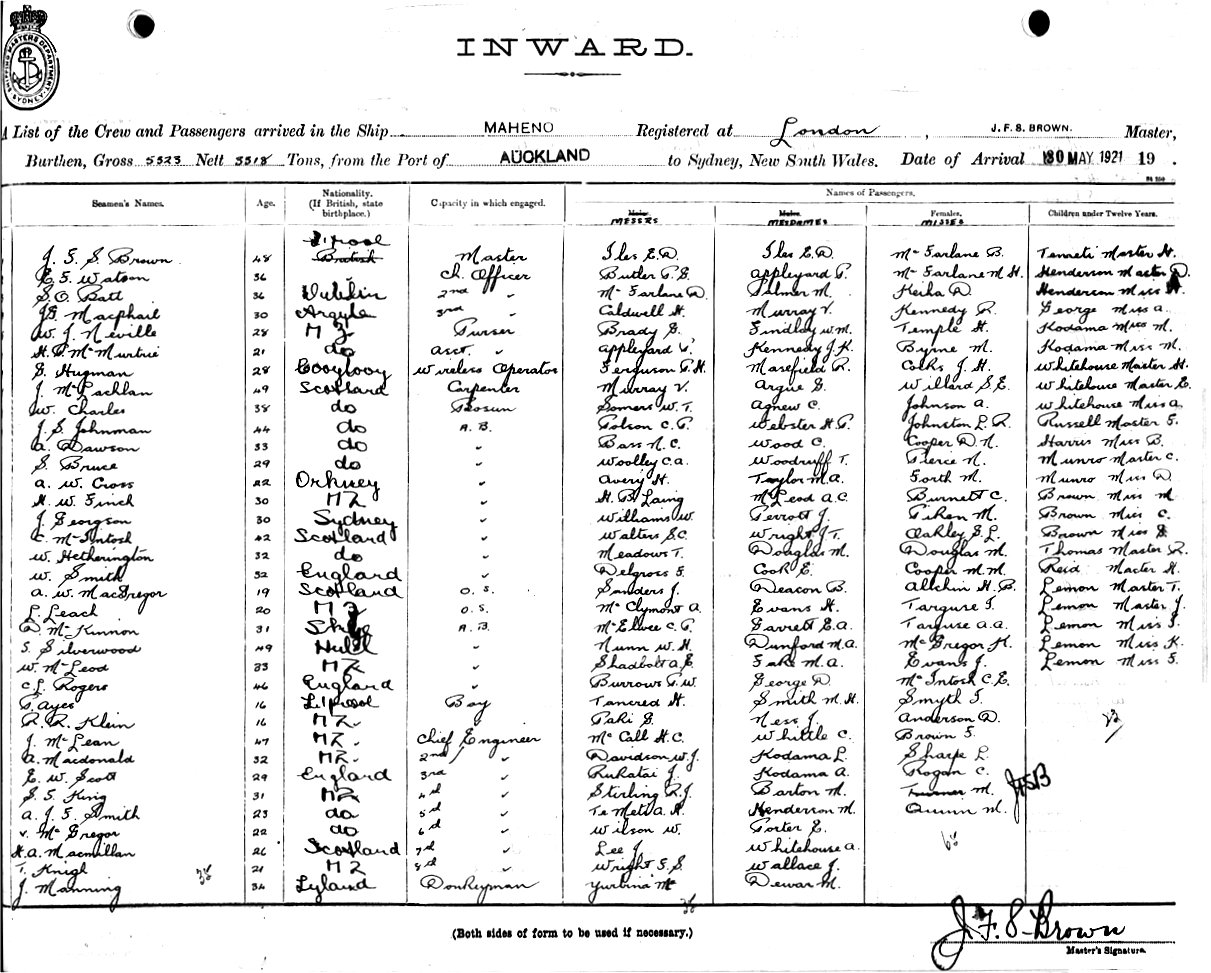 SHIPPING MASTERS DEPARTMENT SYDNEY
INWARD.
A List of the Crew and Passengers arrived in the Ship MAHENO Registered at London, J. F. S. BROWN. Master,
Burthen, Gross 5323 Nett 3318 Tons, from the Port of AUCKLAND to Sydney, New South Wales. Date of Arrival 30 MAY 1921 19 .
Seamen's Names. Age. Nationality. (If British, state birthplace.) Capacity in which engaged. Names of Passengers.
MESSRS MESDAMES Females. MISSES Children under Twelve Years.
L'pool
J. F. S. Brown 48 British Master Iles E.D. Iles E.D. McFarlane B. Temeti Master H.
E. F. Watson 36 Ch. Officer Butler P.G. Appleyard P. McFarlane M.H. Henderson Master D.
S.O. Batt 36 Dublin 2nd " McFarlane D. Palmer M. Keiha D. Henderson Miss
J.G. Macphail 30 Argyle 3rd " Caldwell H. Murray V. Kennedy R. George Miss A.
W. J. Neville 28 NZ Purser Brady G. Findlay W.M. Temple H. Kodama Miss M.
H. McMurtrie 21 do Asst. " Appleyard Kennedy J.K. Byrne M. Kodama Miss M.
G. Hugman 28 Wireless Operator Ferguson P.H. Masefield R. J.H. Whitehouse Master H.
J. McLachlan 49 Scotland Carpenter Murray V. Argue G. Willard S.E. Whitehouse Master E.
W. Charles 38 do Bosun Somers W.T. Agnew C. Johnson A. Whitehouse Miss A.
J. S. Johnman 44 do A.B. Polson C.P. Webster H.P. Johnston L.R. Russell Master F.
A. Dawson 33 do " Bass N.C. Wood C. Cooper D.N. Harris Miss B.
G. Bruce 29 do " Woolley C.A. Woodruff T. Pierce N. Munro Master C.
A. W. Cross 22 Orkney " Avery H. Taylor M.A. Forth M. Munro Miss D.
H. W. Finch 30 NZ " H. B. Laing McLeod A.C. Burnett C. Brown Miss M.
J. Georgson 30 Sydney " Williams W. Perrott J. M. Brown Miss C.
C. McIntosh 42 Scotland " Walters S.C. Wright J.T. Oakley G.L. Brown Miss G.
W. Hetherington 32 do " Meadows T. Douglas M. Douglas M. Thomas Master R.
W. Smith 32 England " Delgross F. Cook E. Cooper M.M. Reid Master H.
A. W. MacGregor 19 Scotland O.S. Sanders J. Deacon B. Allchin H.B. Lemon Master T.
L. Leach 20 NZ O.S. McClymont A. Evans H. Targuse I. Lemon Master J.
D. McKinnon 31 Skye A.B. McElwee C.P. Garrett E.A. Targuse A.A. Lemon Miss I.
S. Silverwood 49 Hull " Nunn W.H. Dunford M.A. McGregor H. Lemon Miss K.
W. McLeod 33 NZ " Shadbolt A.E. M.A. Evans J. Lemon Miss F.
C.L. Rogers 46 England " Burrows P.W. George D. McIntosh C.E.
P. Ayes 16 L'pool Boy Tancred H. Smith M.H. Smyth I.
R. R. Klein 16 NZ " Paki G. Ness J. Anderson D. 23
J. McLean 47 NZ Chief Engineer McCall H.C. Whittle C. Brown F.
A. Macdonald 32 NZ 2nd " Davidson W.J. Kodama L. Sharpe L.
E. W. Scott 29 England 3rd " Rukatai J. Kodama A. Rogan C. JFSB
S. S. King 31 NZ 4th " Stirling R.J. Barton M. M.
A. J. S. Smith 23 do 5th " H. Henderson M. Quinn M.
V. McGregor 22 do 6th " Wilson W. Porter E.
H.A. Macmillan 26 Scotland 7th " Lee J. Whitehouse A.
T. Knight 38 21 NZ 8th " Wright F.S. Wallace J.
J. Manning 34 Donkeyman Dewar M.
38
(Both sides of form to be used if necessary.) J. F. S. Brown
Master's Signature.